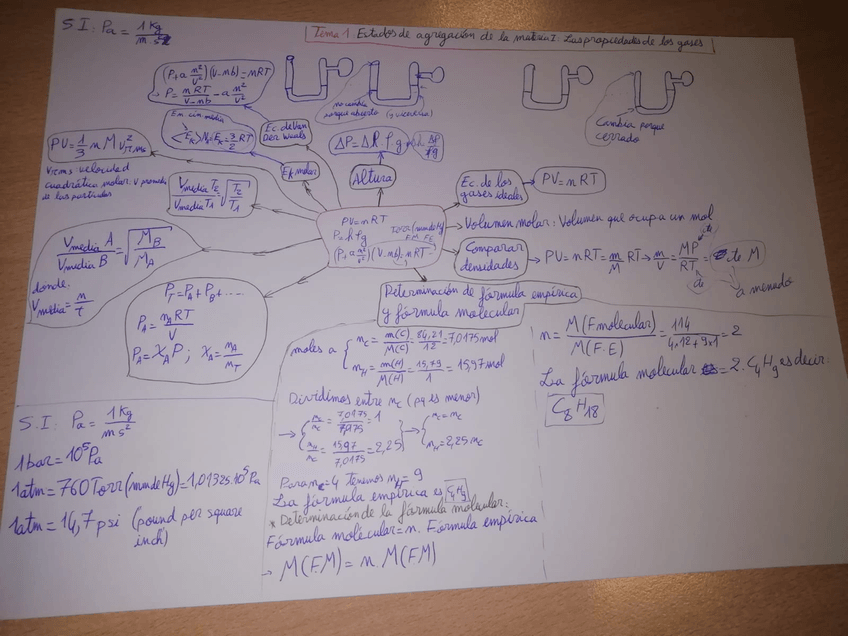 S.I: Pa = 1Kg / m s2
Tema 1 Estados de agregación de la materia I: Las propiedades de los gases
(P+a n²/v²)(v-nb)=nRT
→ P= nRT/v-nb - a n²/v²
no cambia porque abierto
(y viceversa)
Cambia porque cerrado
En cin. media
<E_K>N_A=E_K=3/2 RT
Ec. de Van Der Waals
PV=1/3 n M v²r.m.s
Vrms velocidad cuadrática molar: v promedio de las partículas
ΔP=Δh.ρ.g
Δh=ΔP/ρg
Ek molar
Altura
Ec. de los gases ideales
PV=nRT
Vmedia T2/Vmedia T1=√T2/T1
PV=nRT
P=hρg
Torr (mmdeHg)
F.M, F.E
(P+a n²/v²)(V-nb)=nRT
Volumen molar: Volumen que ocupa un mol
Comparar densidades
PV=nRT=m/M RT→m/V=MP/RT=
cte
de
cte M
a menudo
Vmedia A/Vmedia B=√M_B/M_A
donde:
Vmedia=n/t
P_T=P_A+P_B+....
P_A=n_A RT/V
P_A=X_A P; X_A=n_A/n_T
Determinación de fórmula empírica y fórmula molecular
moles a { n_C=m(C)/M(C)=84,21/12=7,0175mol
n_H=m(H)/M(H)=15,79/1=15,97mol
Dividimos entre n_C (pq es menor)
→ { n_C/n_C=7,0175/7,0175=1 → { n_C=n_C
n_H/n_C=15,97/7,0175=2,25 n_H=2,25n_C
Para n_C=4 tenemos n_H=9
La fórmula empírica es C4H9
* Determinación de la fórmula molecular:
Fórmula molécular=n. Fórmula empírica
→ M(F.M)=n.M(F.M)
n=M(F molecular)/M(F.E)=114/4x12+9x1=2
La fórmula molecular =2.C4H9 es decir:
C8H18
S.I: Pa=1Kg/ms²
1bar=10⁵Pa
1atm=760Torr(mmdeHg)=1,01325.10⁵Pa
1atm=14,7psi (pound per square inch)